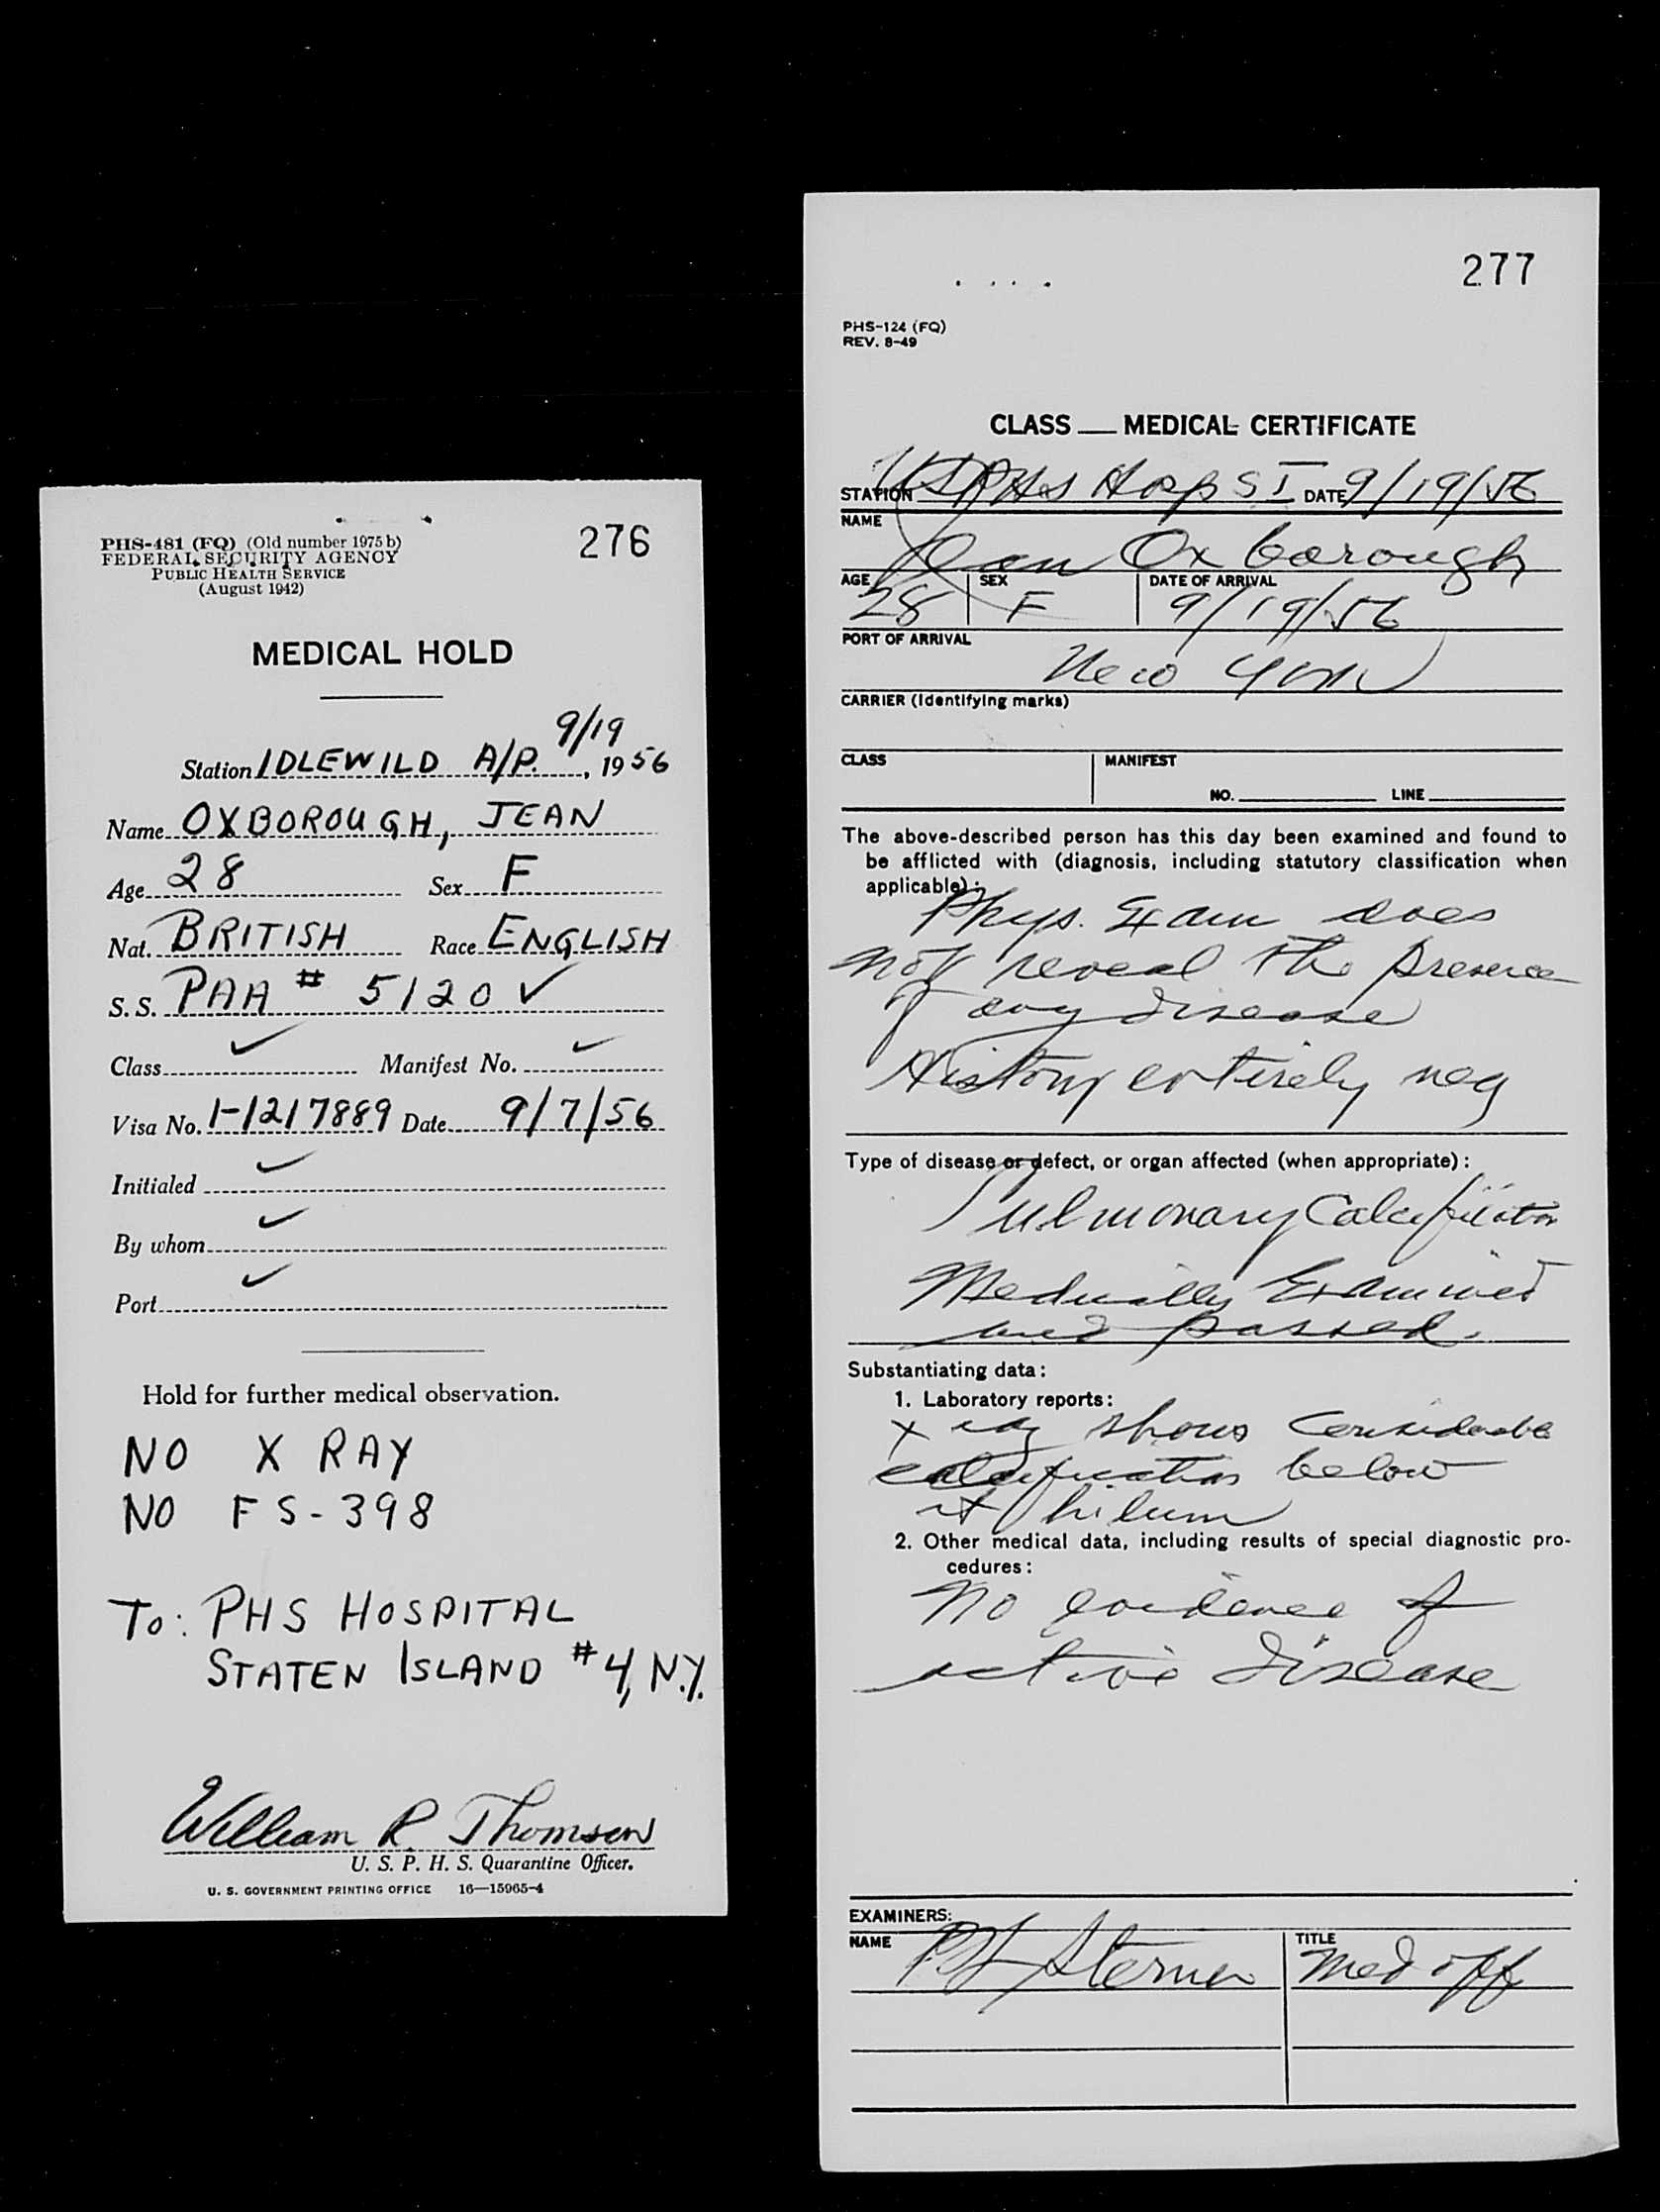 276
PHS-481 (FQ) (Old number 1975 b)
FEDERAL SECURITY AGENCY
PUBLIC HEALTH SERVICE
(August 1942)
MEDICAL HOLD
9/19
Station IDLEWILD A/P. , 1956
Name OXBOROUGH, JEAN
Age 28 Sex F
Nat. BRITISH Race ENGLISH
S. S. PAA # 5120 ✓
Class ✓ Manifest No. ✓
Visa No. I-1217889 Date 9/7/56
Initialed ✓
By whom ✓
Port ✓
Hold for further medical observation.
NO X RAY
NO FS-398
To: PHS HOSPITAL
STATEN ISLAND #4, N.Y.
William R. Thomsen
U. S. P. H. S. Quarantine Officer.
U. S. GOVERNMENT PRINTING OFFICE 16—15965-4
277
PHS-124 (FQ)
REV. 8-49
CLASS ___ MEDICAL CERTIFICATE
STATION USPHS Hosp SI DATE 9/19/56
NAME
Jean Oxborough
AGE SEX DATE OF ARRIVAL
28 F 9/19/56
PORT OF ARRIVAL
New York
CARRIER (Identifying marks)
CLASS MANIFEST
NO. LINE
The above-described person has this day been examined and found to
be afflicted with (diagnosis, including statutory classification when
applicable):
Phys. Exam does
not reveal the presence
of any disease
History entirely neg
Type of disease or defect, or organ affected (when appropriate):
Pulmonary Calcification
Medically Examined
and passed.
Substantiating data:
1. Laboratory reports:
X ray shows considerable
calcification below
rt hilum
2. Other medical data, including results of special diagnostic pro-
cedures:
No evidence of
active disease
EXAMINERS:
NAME TITLE
Sterner Med off